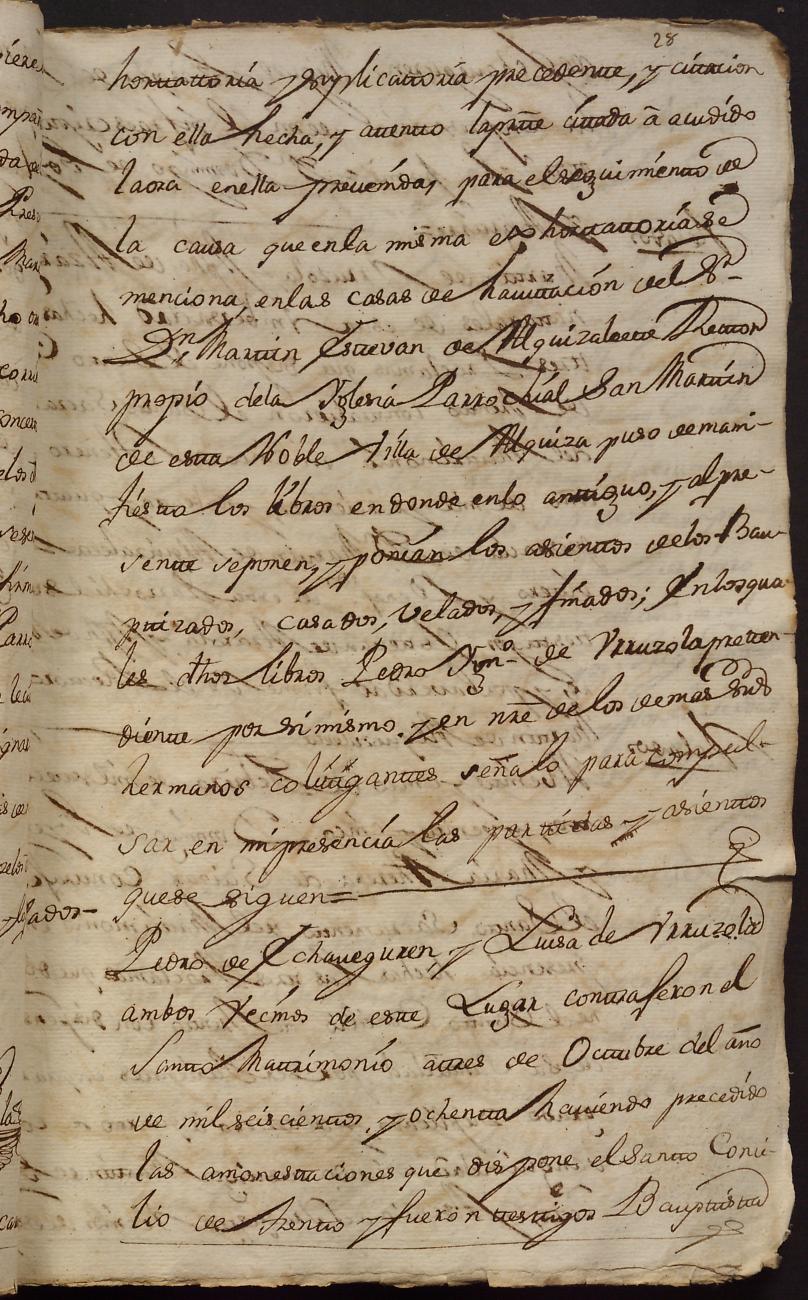 28
hortattoria y suplicattoria precedente, y citacion
con ella hecha, y attento la ptte cittada â acudido
la ora en ella prevenida, para el seguimiento de
la causa que en la misma exhortattoria se
menciona, en las casas de havitación del Sr
Dn. Martin Estevan de Alquizalette Rector
propio de la Yglesia Parrochial San Martin
de esta Noble Villa de Alquiza puso de mani-
fiesto los libros en donde en lo antiguo, y al pre-
sente se ponen, y ponian los asientos de los Bau-
ptizados, casados, velados, y finados; En los qua-
les dhos libros Pedro Ygnº de Urruzola preten-
diente por si mismo, y en nre de los demas sus
hermanos colitigantes señalo para compul-
sar, en mi presencia las partidas y asientos
que se siguen =
Pedro de Echaveguren, y Luisa de Urruzola
ambos Vecinos de este Lugar contraxeron el
Santo Matrimonio â tres de Octubre del año
de mil seiscientos, y ochenta haviendo precedido
las amonestaciones que dispone el Santo Conci-
lio de trento y fueron testigos Bauptista